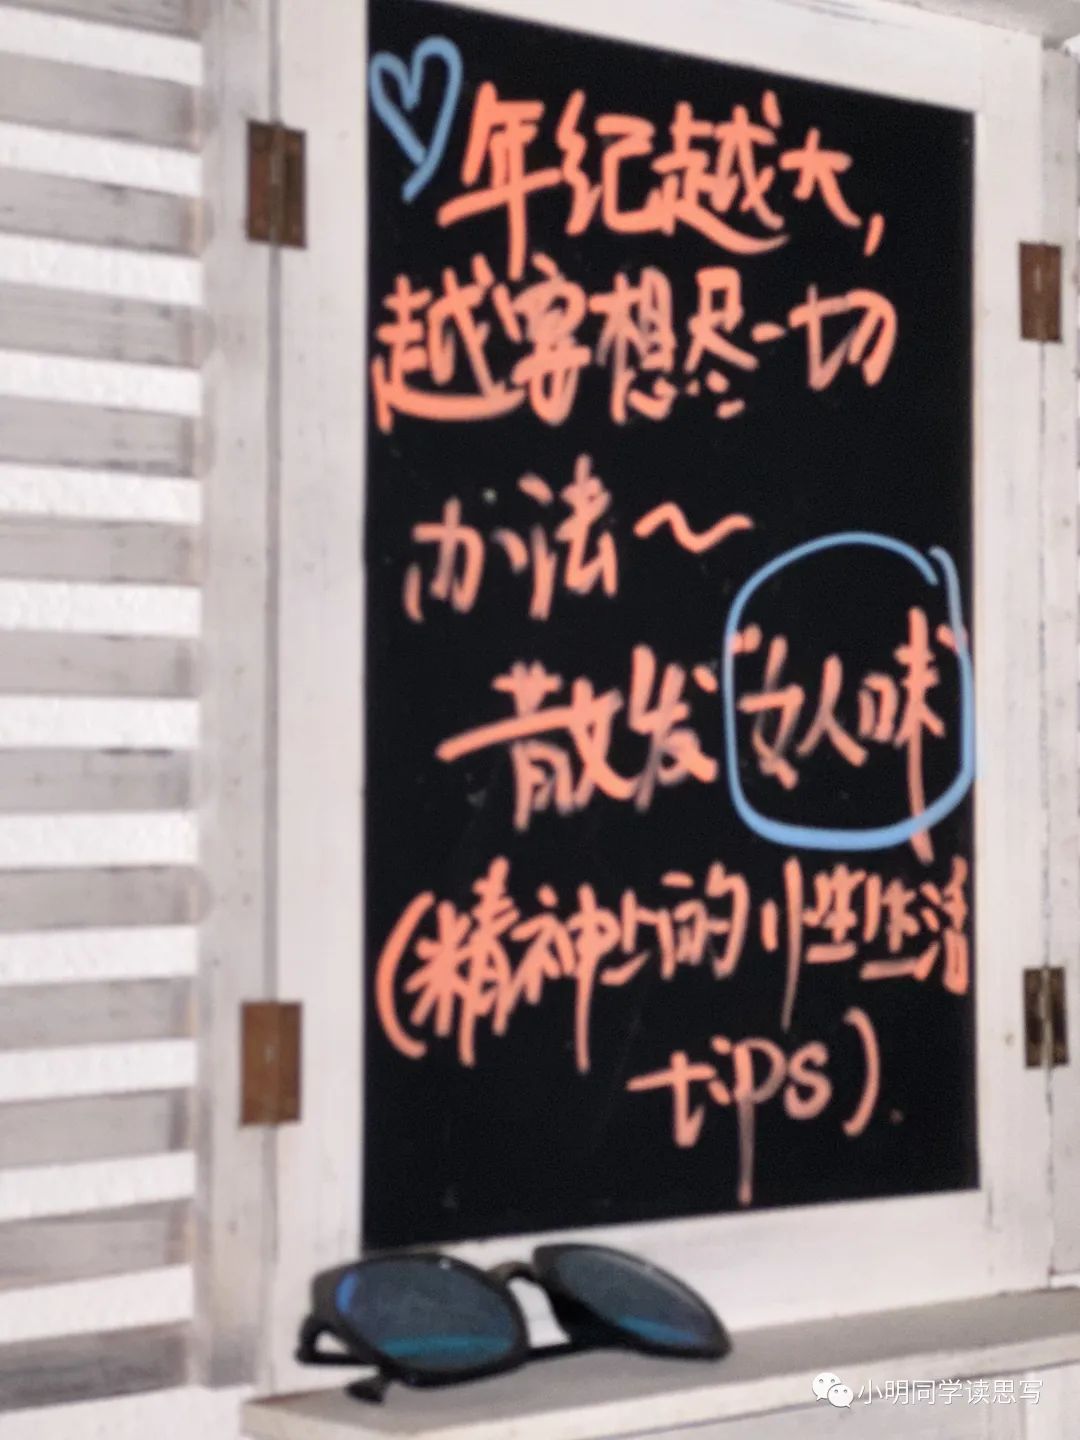 年纪越大,
越要想尽一切
办法~
散发"女人味"
(精神上的性生活
tips)
小明同学读思写